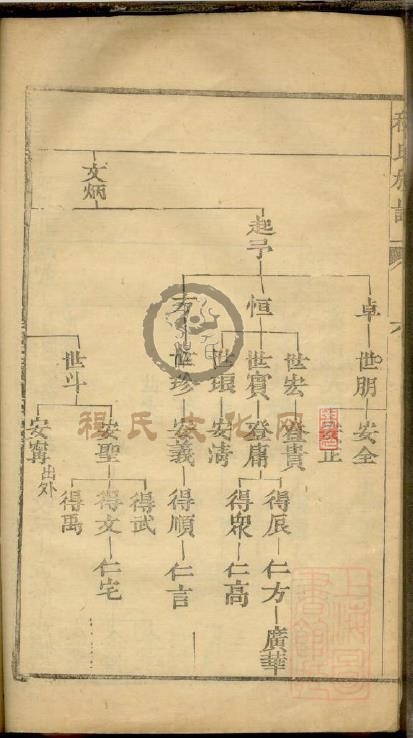 程氏族譜
文炳
起予
卓
世朋
安全
恒
世宏
登貴
世寶
登庸
得辰
仁方
廣華
得衆
仁高
世琅
安淸
世珍
安義
得順
仁言
世斗
安聖
得武
得文
仁宅
得禹
安寗
出外
程氏文化网